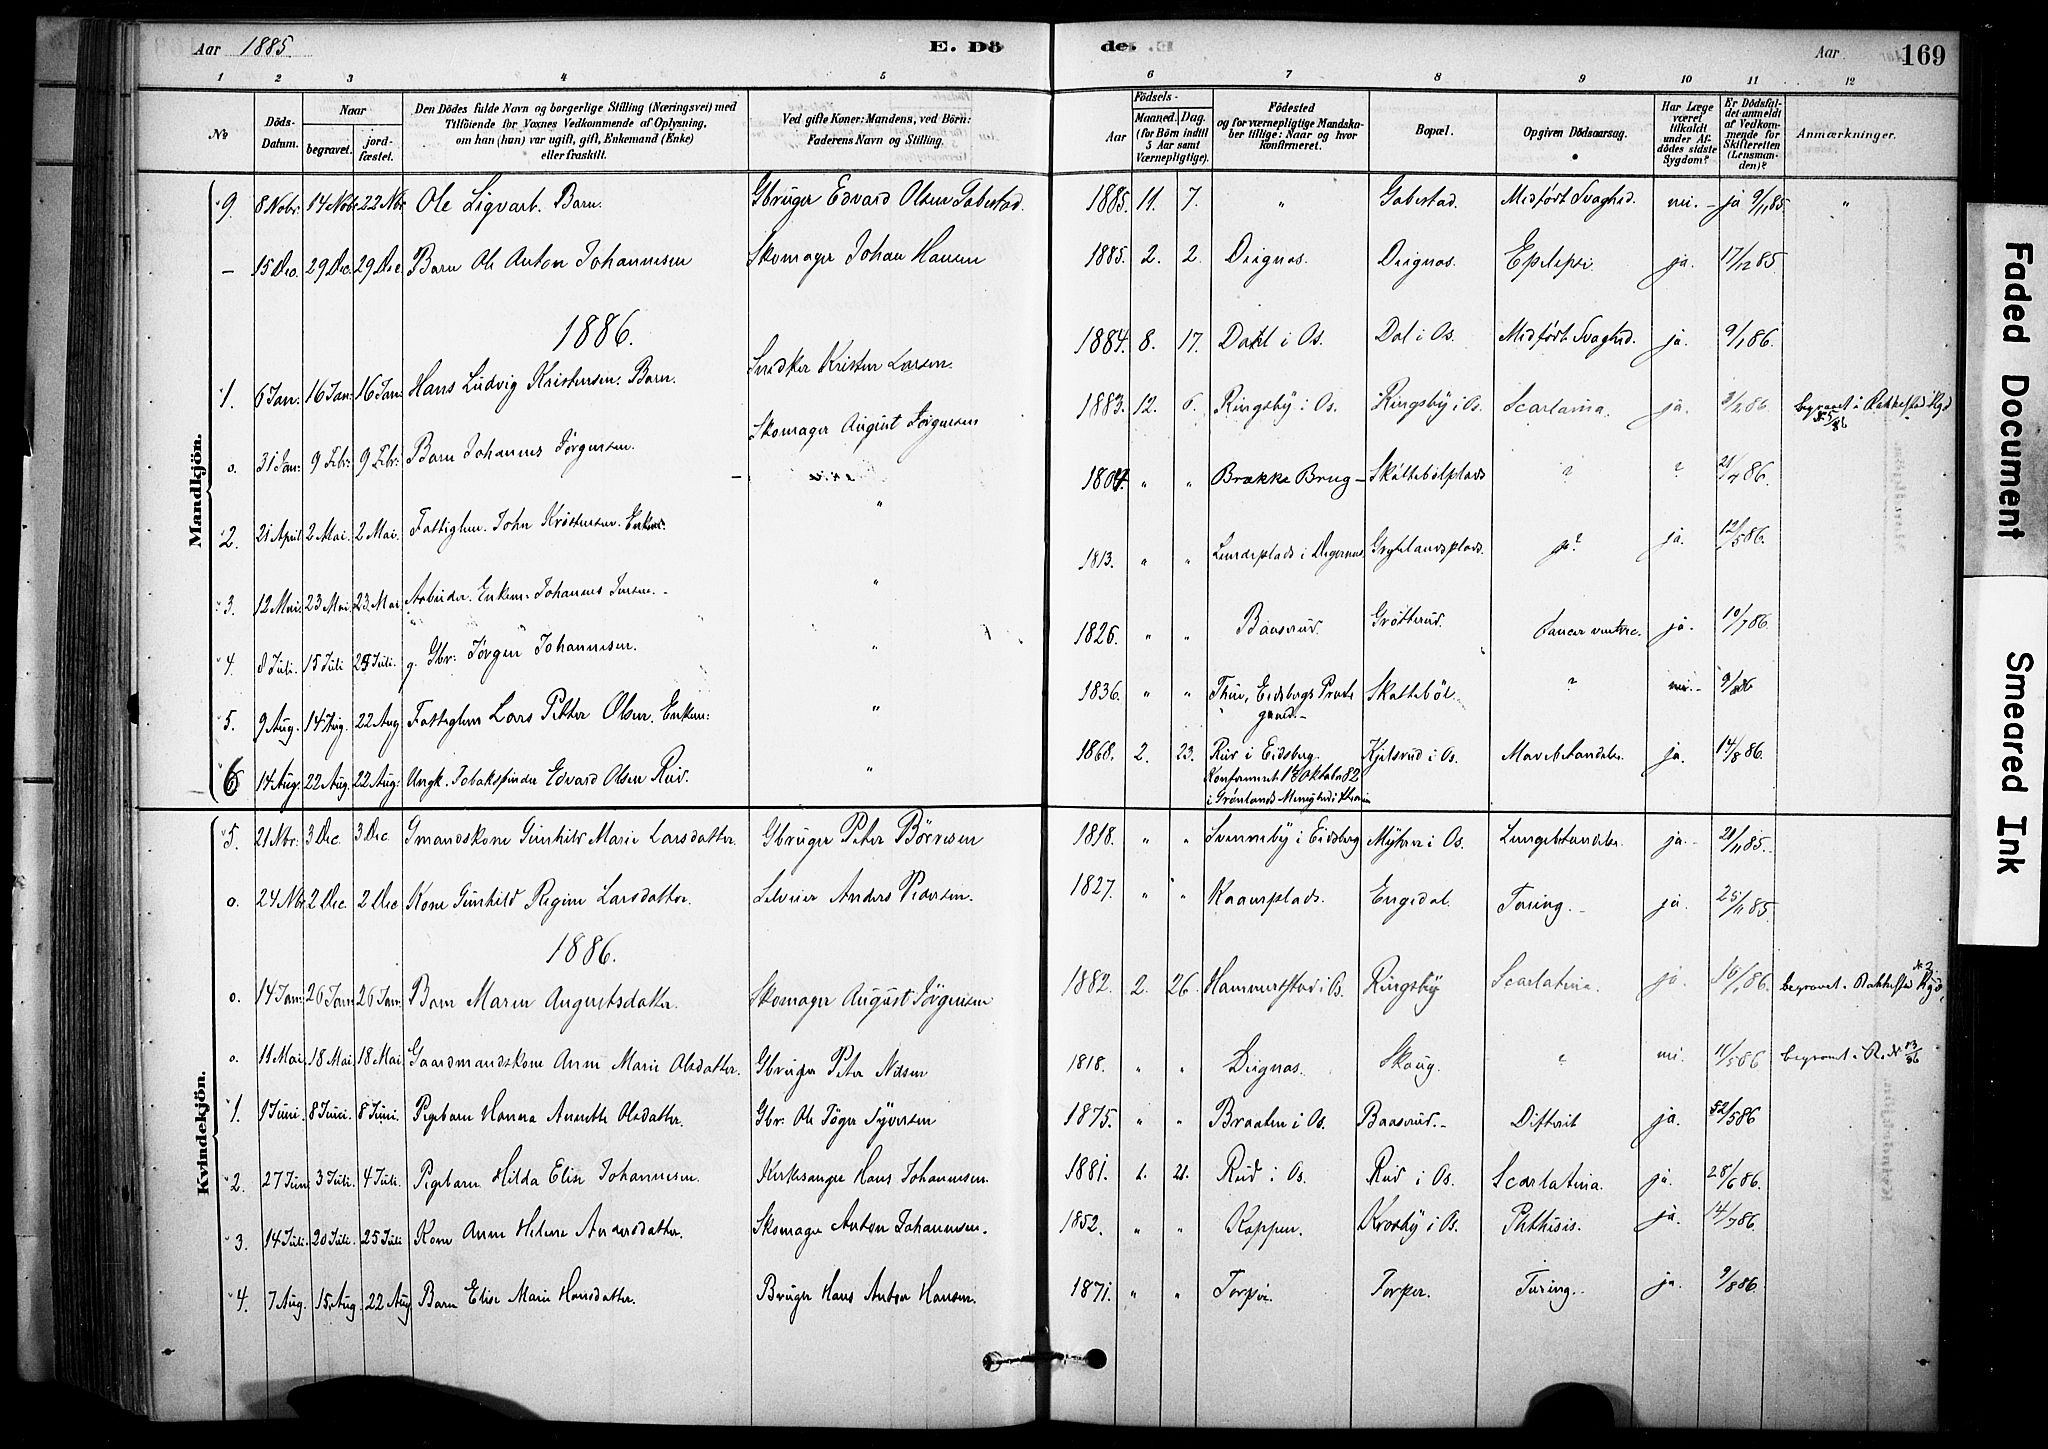 Aar 1885. E. Dö de. Aar 169
1 2 3 4 5 6 7 8 9 10 11 12
No
Döds-Datum.
Naar
begravet. jord-fæstet.
Den Dödes fulde Navn og borgerlige Stilling (Næringsvei) med
Tilföiende for Voxnes Vedkommende af Oplysning,
om han (hun) var ugift, gift, Enkemand (Enke)
eller fraskilt.
Ved gifte Koner: Mandens, ved Börn:
Faderens Navn og Stilling.
Födsels-
Aar
Maaned. Dag.
(for Börn indtil
5 Aar samt
Værnepligtige).
Födested
og for værnepligtige Mandska-
ber tillige: Naar og hvor
konfirmeret.
Bopæl.
Opgiven Dödsaarsag.
Har Læge
været
tilkaldt
under Af-
dödes sidste
Sygdom?
Er Dödsfal-
det anmeldt
af Vedkom-
mende for
Skifteretten
(Lensman-
den)?
Anmærkninger.
Mandkjön.
9. 8 Nobr. 14 Nobr. 22 Nbr. Ole Sigvart. Barn. Gbruger Edvard Olsen Gabestad. 1885. 11. 7. " Gabestad. Medfört Svaghed. nei. - ja 9/11 85. "
- 15 Dec. 29 Dec. 29 Dec. Barn Ole Anton Johannesen Skomager Johan Hansen 1885. 2. 2. Degnæs. Degnæs. Epilepsi. ja. 17/12 85
1886.
1. 6 Jan. 16 Jan. 16 Jan. Hans Ludvig Kristensen. Barn. Snedker Kristen Larsen. 1884. 8. 17. Dahl i Os. Dal i Os. Medfört Svaghed. ja. 9/1 86.
o. 31 Jan. 9 Febr. 9 Febr. Barn Johannes Jörgensen. Skomager August Jörgensen 1883. 12. 6. Ringsby i Os. Ringsby i Os. Scarlatina. ja. 3/2 86. begravet i Rakkestad Kgd
2. 21 April 2 Mai. 2 Mai. Fattiglem. John Kristensen. Enkem. " 1804. " " Brække Brug - Skattebölplads ? ? 21/4 86.
3. 12 Mai. 23 Mai. 23 Mai. Arbeider. Enkem. Johannes Jensen. " 1813. " " Lundeplads i Degernæs Grytelandsplads. ja? ja. 12/5 86.
4. 8 Juli. 15 Juli 25 Juli. g. Gbr. Jörgen Johannesen. " 1826. " " Baaserud. Gröttrud. Cancer ventric. ja. 10/7 86.
5. 9 Aug. 14 Aug. 22 Aug. Fattiglem Lars Petter Olsen. Enkem: " 1836. " " Thue, Eidsbergs Præste Skattebøl. ? nei. - 9/8 86
gjeld.
6 14 Aug. 22 Aug. 22 Aug. Ungk. Tobakspinder Edvard Olsen Rud. " 1868. 2. 23. Rud i Eidsberg. Kjelsrud i Os. Mavebetændelse. ja. 14/8 86.
Konfirmeret 1 Oktober 82
i Grönlands Menighed i
Kvindekjön.
5. 21 Nbr. 3 Dec. 3 Dec. Gmandskone Gunhild Marie Larsdatter. Gbruger Peter Börresen 1818. " " Svenneby i Eidsberg Myhren i Os. Lungebetændelse. ja. - 21/11 85.
o. 24 Nbr. 2 Dec. 2 Dec Kone Gunhild Regine Larsdatter. Selveier Anders Pedersen. 1827. " " Kaaenplads. Engedal. Tæring. - ja. 25/11 85.
1886.
o. 14 Jan. 26 Jan. 26 Jan. Barn Maren Augustsdatter. Skomager August Jörgensen 1882. 2. 26. Hammerstad i Os. Ringsby Scarlatina. ja. 16/1 86. begravet i Rakkestad Kgd.
o. 11 Mai. 18 Mai. 18 Mai. Gaardmandskone Anne Marie Olsdatter. Gbruger Peter Nilsen 1818. " " Degnæs. Skoug. " nei. 11/5 86 begravet i R. N 13/86
1. 1 Juni. 8 Juni. 8 Juni. Pigebarn Hanna Annette Olsdatter. Gbr. Ole Töger Syversen 1875. " " Braaten i Os. Baaserud. - Difterit ja.
2. 27 Juni 3 Juli. 4 Juli. Pigebarn Hilda Elise Johannesen. Kirkesanger Hans Johannesen. 1881. 1. 21. Rud i Os. Rud i Os. Scarlatina. ja. 28/6 86.
3. 14 Juli. 20 Juli. 25 Juli Kone Anne Helene Andersdatter. Skomager Anton Johannesen. 1852. " " Kopper. Krosby i Os. Phthisis. ja. 14/7 86.
4. 7 Aug. 15 Aug. 22 Aug Barn Elise Marie Hansdatter. Bruger Hans Anton Hansen. 1871. " " Torper. Torper. Tæring. ja. 9/8 86.
Faded Document
Smeared Ink